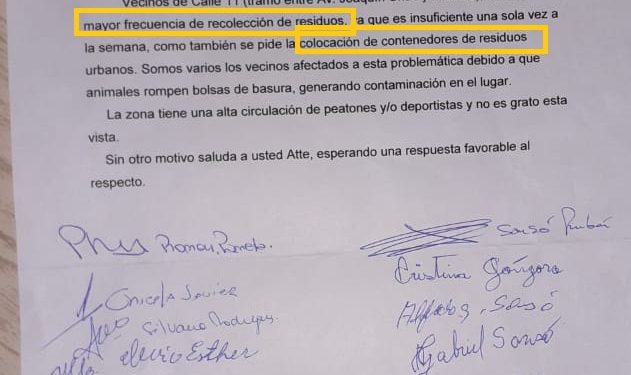 Vecinos de Calle 11 (tramo entre Av. Joaquín
mayor frecuencia de recolección de residuos, ya que es insuficiente una sola vez a
la semana, como también se pide la colocación de contenedores de residuos
urbanos. Somos varios los vecinos afectados a esta problemática debido a que
animales rompen bolsas de basura, generando contaminación en el lugar.
La zona tiene una alta circulación de peatones y/o deportistas y no es grato esta
vista.
Sin otro motivo saluda a usted Atte, esperando una respuesta favorable al
respecto.
Sansó
Cristina Góngora
Javier
Sansó
Silvano
Esther
Gabriel Sansó